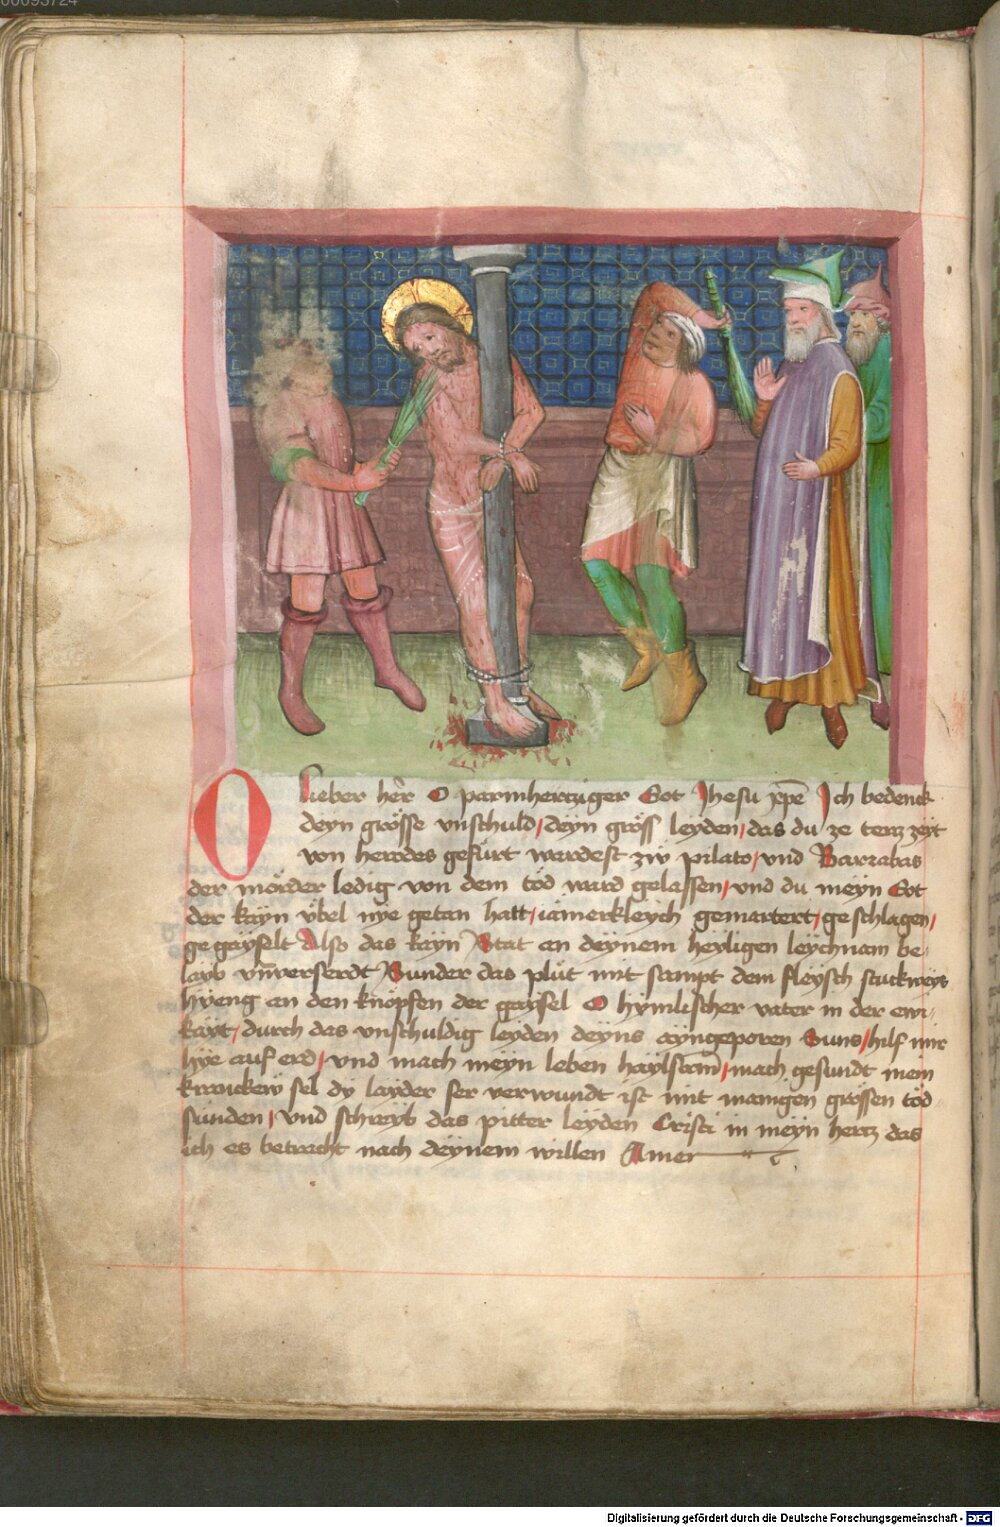 00093724
O lieber her̄ O parmhercziger Got Jhesu xp̄e Ich bedenck
deyn grösse vnschuld / deyn gröss leyden / das du ze tercz zeyt
von herodes gefürt wardest zw pilato / vnd Barrabas
der mörder ledig von dem töd ward gelassen / vnd du meyn Got
der kayn vbel nye getan hatt / iamerkleych gemartert / geschlagen /
gegayselt Also das kayn Stat an deynem heyligen leychnam be-
layb vnverserdt Sunder das plüt mit sampt dem fleysch stuckweys
hyeng an den knöpfen der gaysel O hymlischer vater in der ewi-
kayt / durch das vnschuldig leyden deyns ayngeporen Suns / hilf mir
hye auf erd / vnd mach meyn leben haylsam / mach gesundt mein
kranckew sel dy layder ser verwundt ist mit manigen grossen töd-
sünden / vnd schreyb das pitter leyden Cristi in meyn hercz das
ich es betracht nach deynem willen Amen
Digitalisierung gefördert durch die Deutsche Forschungsgemeinschaft - DFG